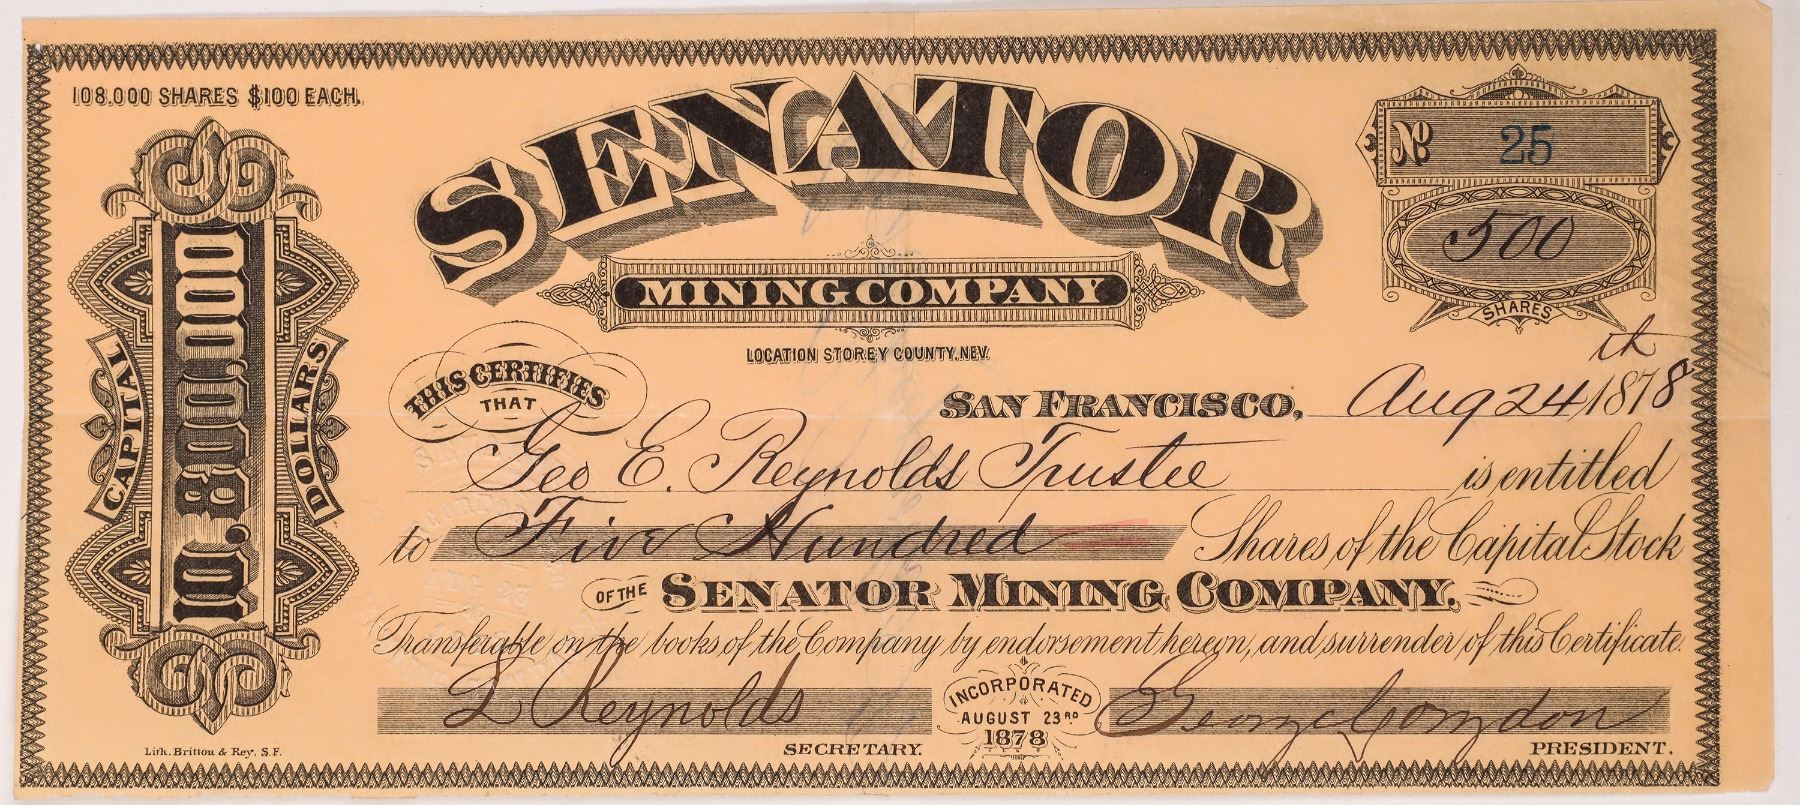 108.000 SHARES $100 EACH.
SENATOR
MINING COMPANY
LOCATION STOREY COUNTY, NEV.
No 25
500
SHARES
CAPITAL
10,800,000
DOLLARS
THIS CERTIFIES
THAT
SAN FRANCISCO, Aug 24th 1878
Geo E. Reynolds Trustee is entitled
to Five Hundred Shares of the Capital Stock
OF THE SENATOR MINING COMPANY.
Transferable on the books of the Company by endorsement hereon, and surrender of this Certificate.
L Reynolds
SECRETARY.
INCORPORATED
AUGUST 23RD
1878
George Congdon
PRESIDENT.
Lith. Britton & Rey, S.F.